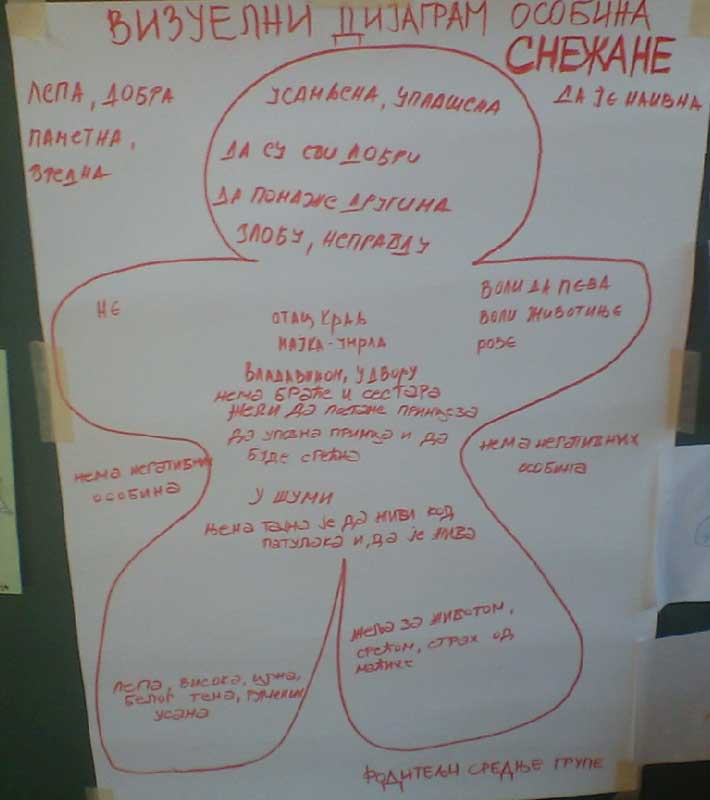 ВИЗУЕЛНИ ДИЈАГРАМ ОСОБИНА
СНЕЖАНЕ
ЛЕПА, ДОБРА
ПАМЕТНА,
ВРЕДНА
УСАМЉЕНА, УПЛАШЕНА
ДА ЈЕ НАИВНА
ДА СУ СВИ ДОБРИ
ДА ПОМАЖЕ ДРУГИМА
ЗЛОБУ, НЕПРАВДУ
НЕ
ВОЛИ ДА ПЕВА
ВОЛИ ЖИВОТИЊЕ
РОЗЕ
ОТАЦ КРАЉ
МАЈКА-УМРЛА
ВЛАДАВИНОМ, У ДВОРУ
НЕМА БРАЋЕ И СЕСТАРА
ЖЕЛИ ДА ПОСТАНЕ ПРИНЦЕЗА
ДА УПОЗНА ПРИНЦА И ДА
БУДЕ СРЕЋНА
НЕМА НЕГАТИВНИХ
ОСОБИНА
НЕМА НЕГАТИВНИХ
ОСОБИНА
У ШУМИ
ЊЕНА ТАЈНА ЈЕ ДА ЖИВИ КОД
ПАТУЉАКА И, ДА ЈЕ ЖИВА
ЖЕЉА ЗА ЖИВОТОМ,
СРЕЋОМ, СТРАХ ОД
МАЋИХЕ
ЛЕПА, ВИСОКА, ЦРНА,
БЕЛОГ ТЕНА, РУМЕНИХ
УСАНА
РОДИТЕЉИ СРЕДЊЕ ГРУПЕ